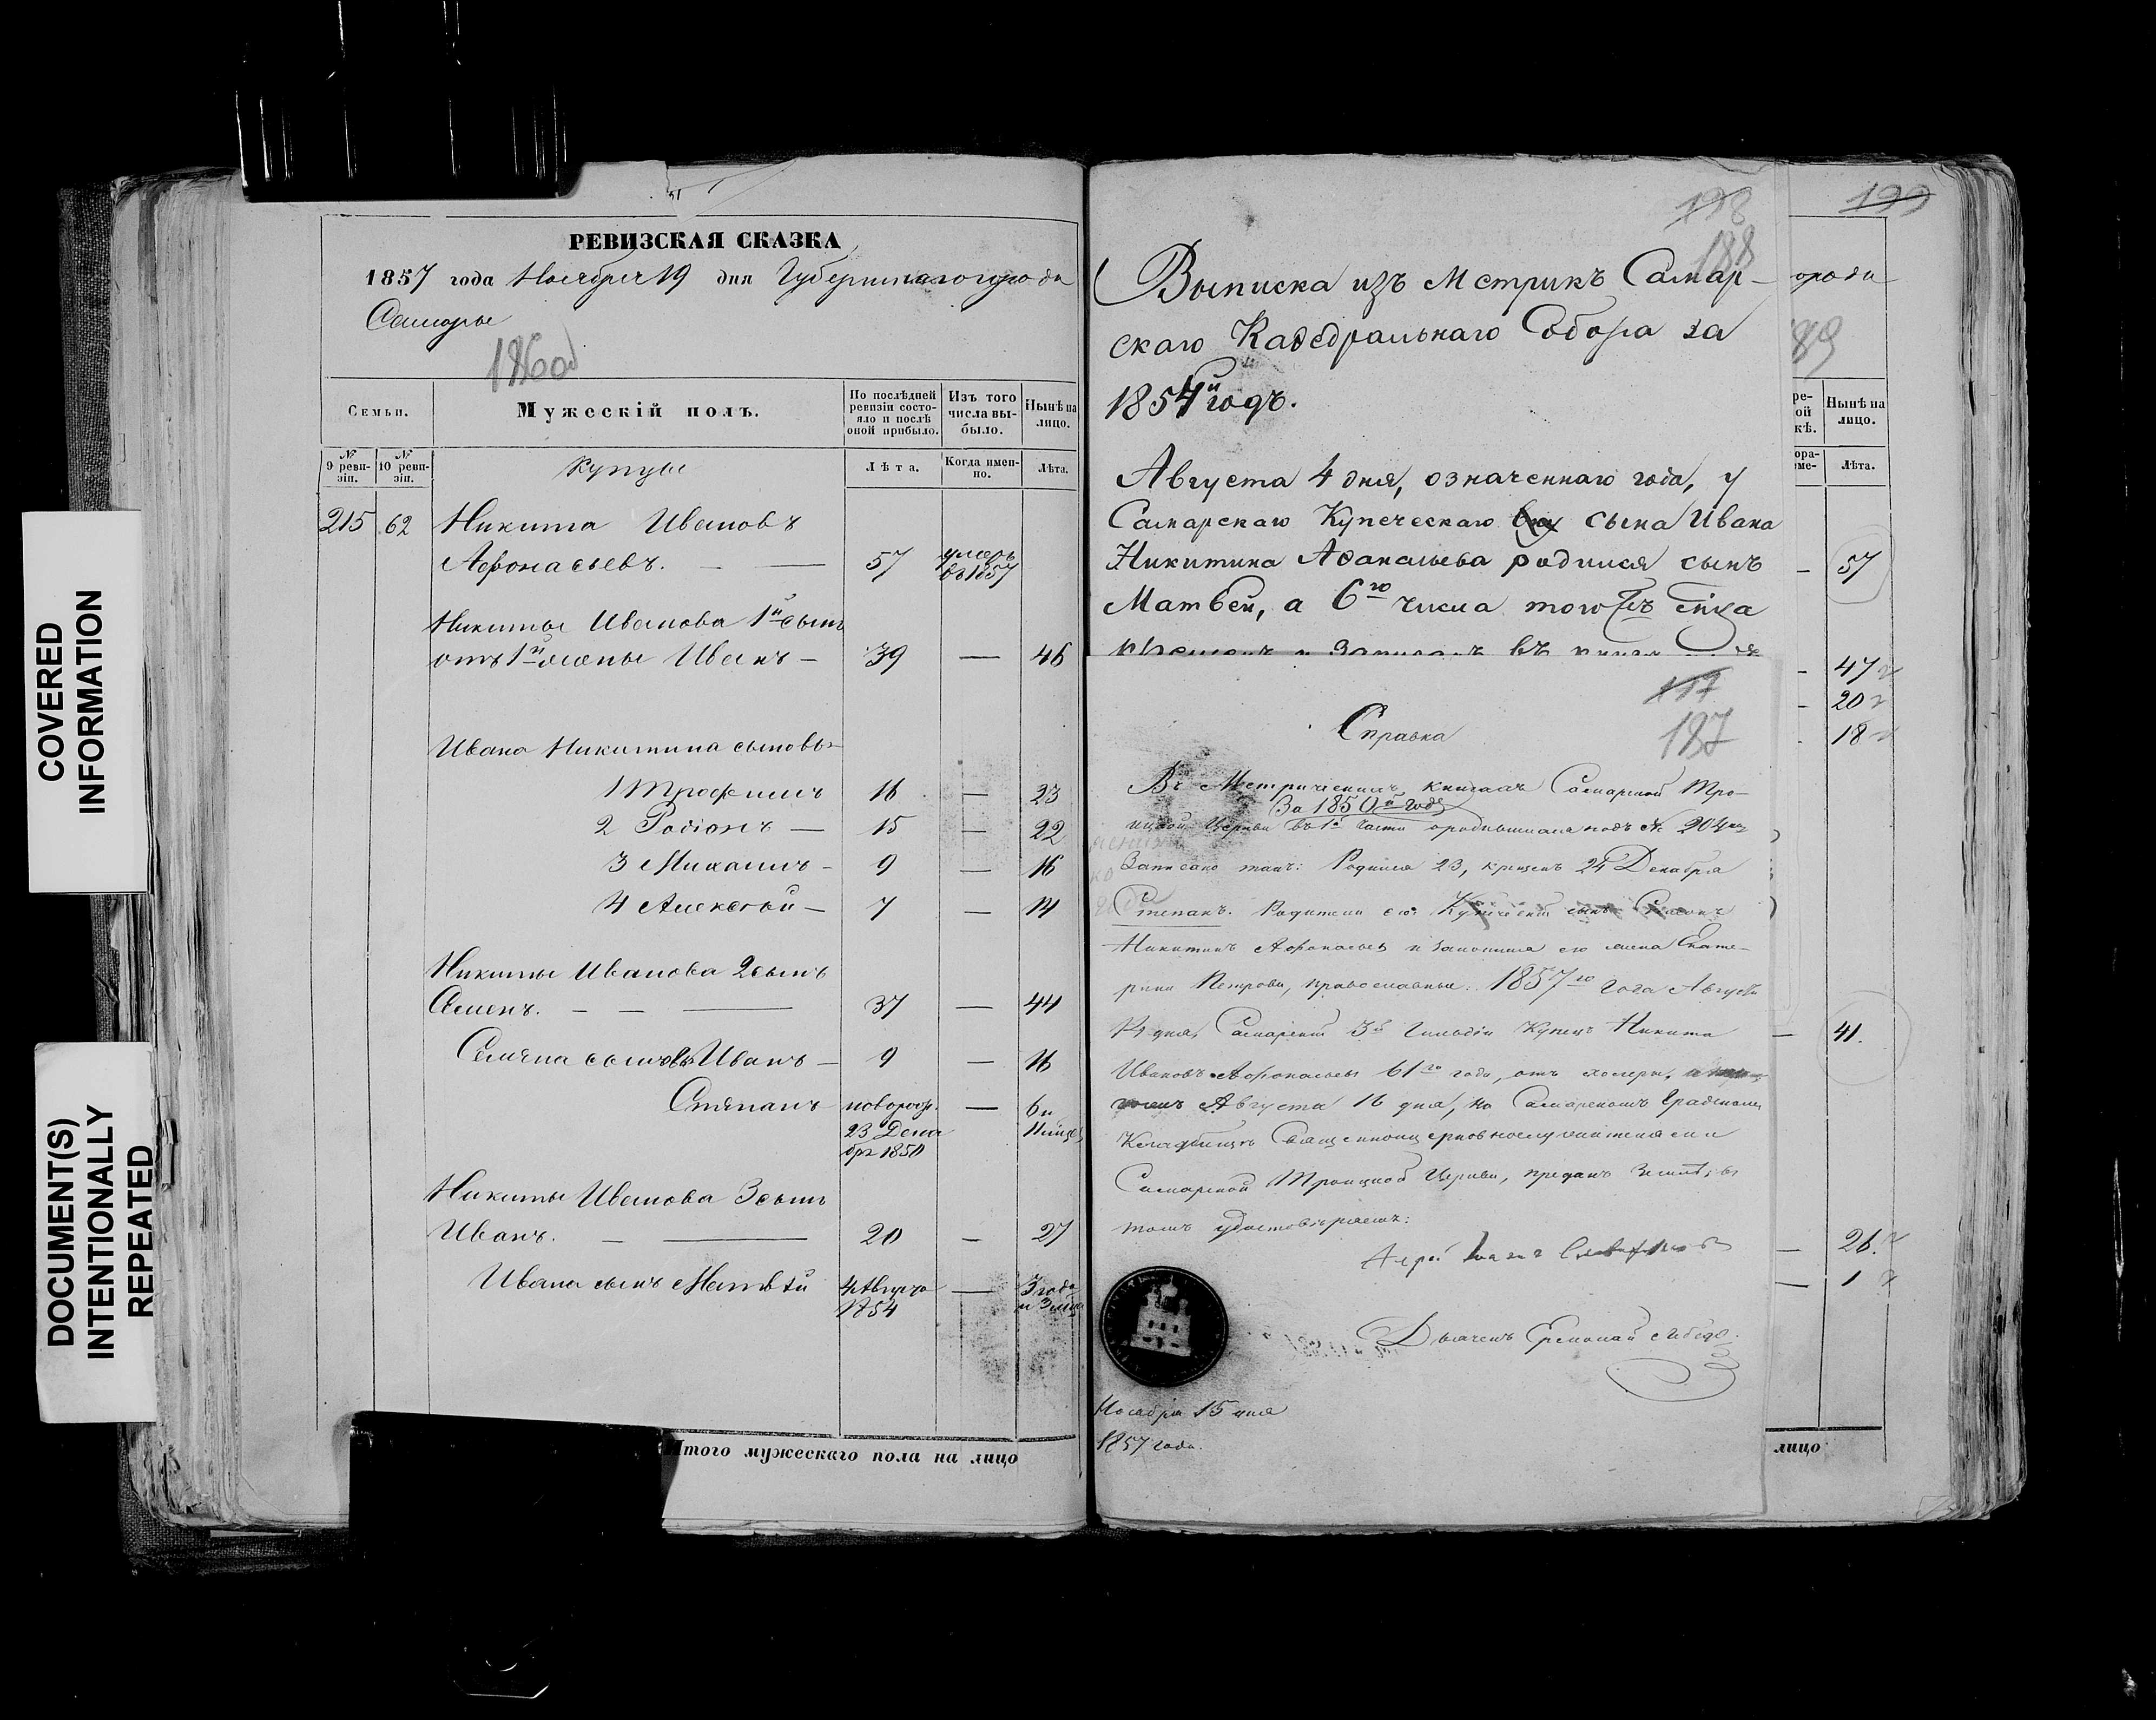 COVERED
INFORMATION
DOCUMENT(S)
INTENTIONALLY
REPEATED
РЕВИЗСКАЯ СКАЗКА
1857 года Ноября 19 дня Губернскаго города
Самары
186 об
Семьи.
Мужескій полъ.
По послѣдней ревизіи состояло и послѣ оной прибыло.
Изъ того числа выбыло.
Нынѣ на лицо.
№ 9 ревизіи.
№ 10 ревизіи.
Купцы
Лѣта.
Когда именно.
Лѣта.
215 62 Никита Ивановъ
Афонасьевъ. — 57 умеръ
въ 1857
Никиты Иванова 1й сынъ
отъ 1й жены Иванъ — 39 — 46
Ивана Никитина сыновья
1 Трофимъ 16 — 23
2 Родіонъ — 15 — 22
3 Михаилъ — 9 — 16
4 Алексѣй — 7 — 14
Никиты Иванова 2 сынъ
Семенъ. — — — 37 — 44
Семена сыновья Иванъ — 9 — 16
Степанъ новорож. — 6 и
23 Дека 11 мѣс.
бря 1850
Никиты Иванова 3 сынъ
Иванъ. — — 20 — 27
Ивана сынъ Матвѣй 4 Августа — 3 года
1854 и 3 мѣс
Итого мужескаго пола на лицо
198
188
Выписка изъ Метрикъ Самар-
скаго Каѳедральнаго Собора за
1854й годъ.
Августа 4 дня, означеннаго года, у
Самарскаго Купеческаго сына Ивана
Никитина Аѳанасьева родился сынъ
Матвей, а 6го числа того жъ мѣсяца
крещенъ и записанъ въ книгу
197
187
Справка
Въ Метрическихъ книгахъ Самарской Тро-
За 1850й годъ
ицкой Церкви въ 1й части о родившихся подъ № 204мъ
Записано такъ: Родился 23, крещенъ 24 Декабря
Степанъ. Родители его: Купеческій сынъ Семенъ
Никитинъ Афонасьевъ и законная его жена Екате-
рина Петрова, православные. 1857го года Августа
14 дня, Самарскій 3й Гильдіи Купецъ Никита
Ивановъ Афонасьевъ 61го года, отъ холеры,
Августа 16 дня, на Самарскомъ Градскомъ
Кладбищѣ Священноцерковнослужителями
Самарской Троицкой Церкви, преданъ землѣ; въ
томъ удостовѣряемъ:
Ноября 15 дня
1857 года.
199
орода
189
Нынѣ на лицо.
Лѣта.
57
47
20
18
41.
26.
1
лицо